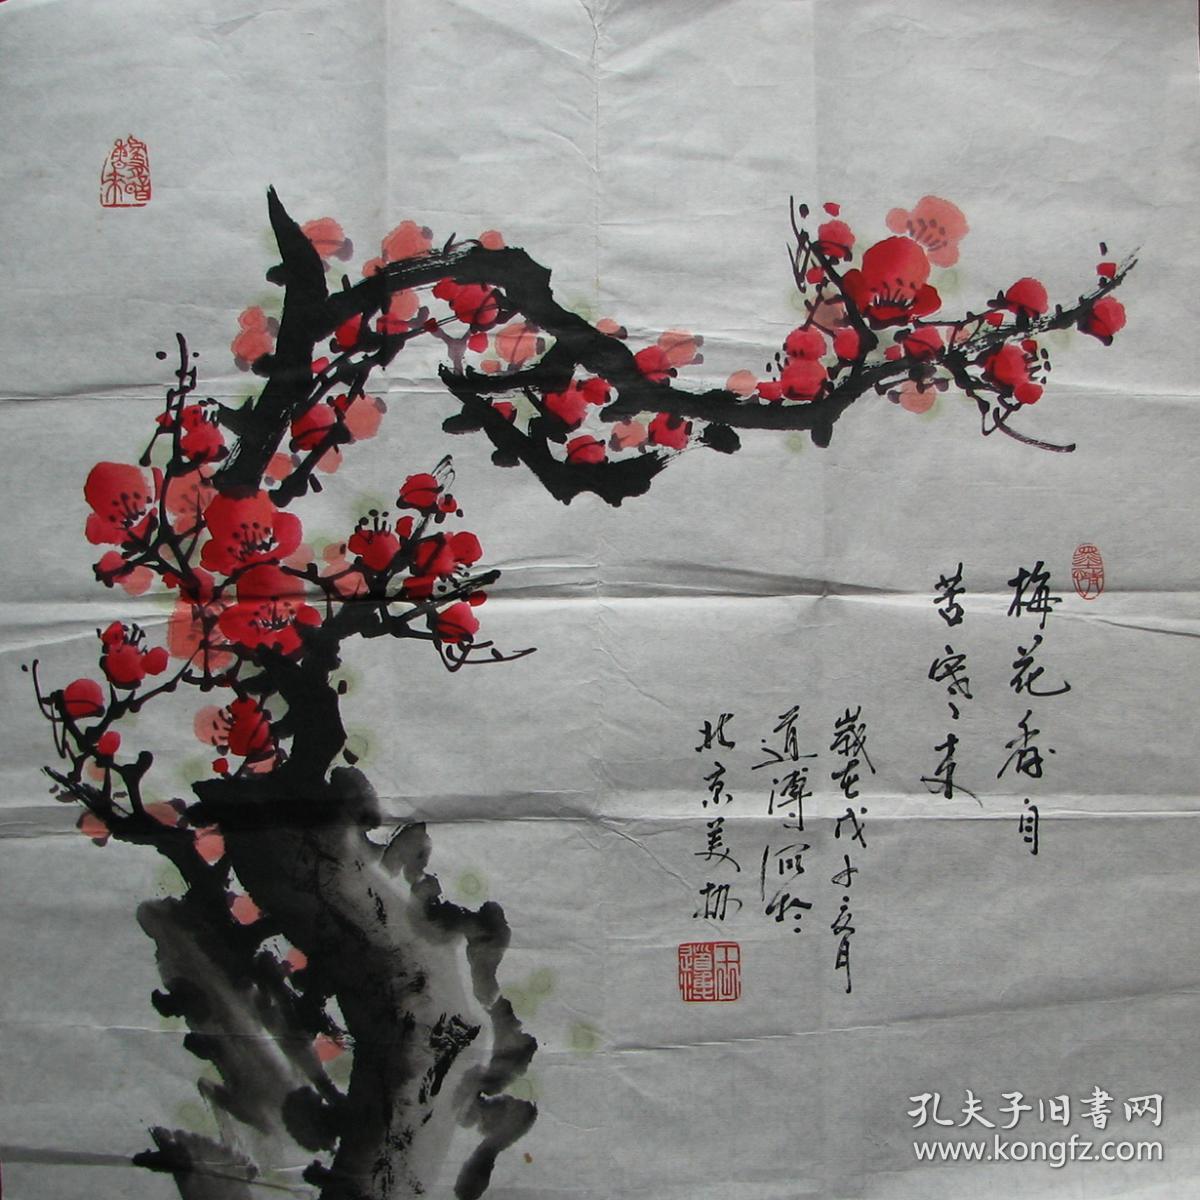 梅花香自
苦寒来
歳在戊子之夏月
道溥 於
北京美协
孔夫子旧書网
www.kongfz.com